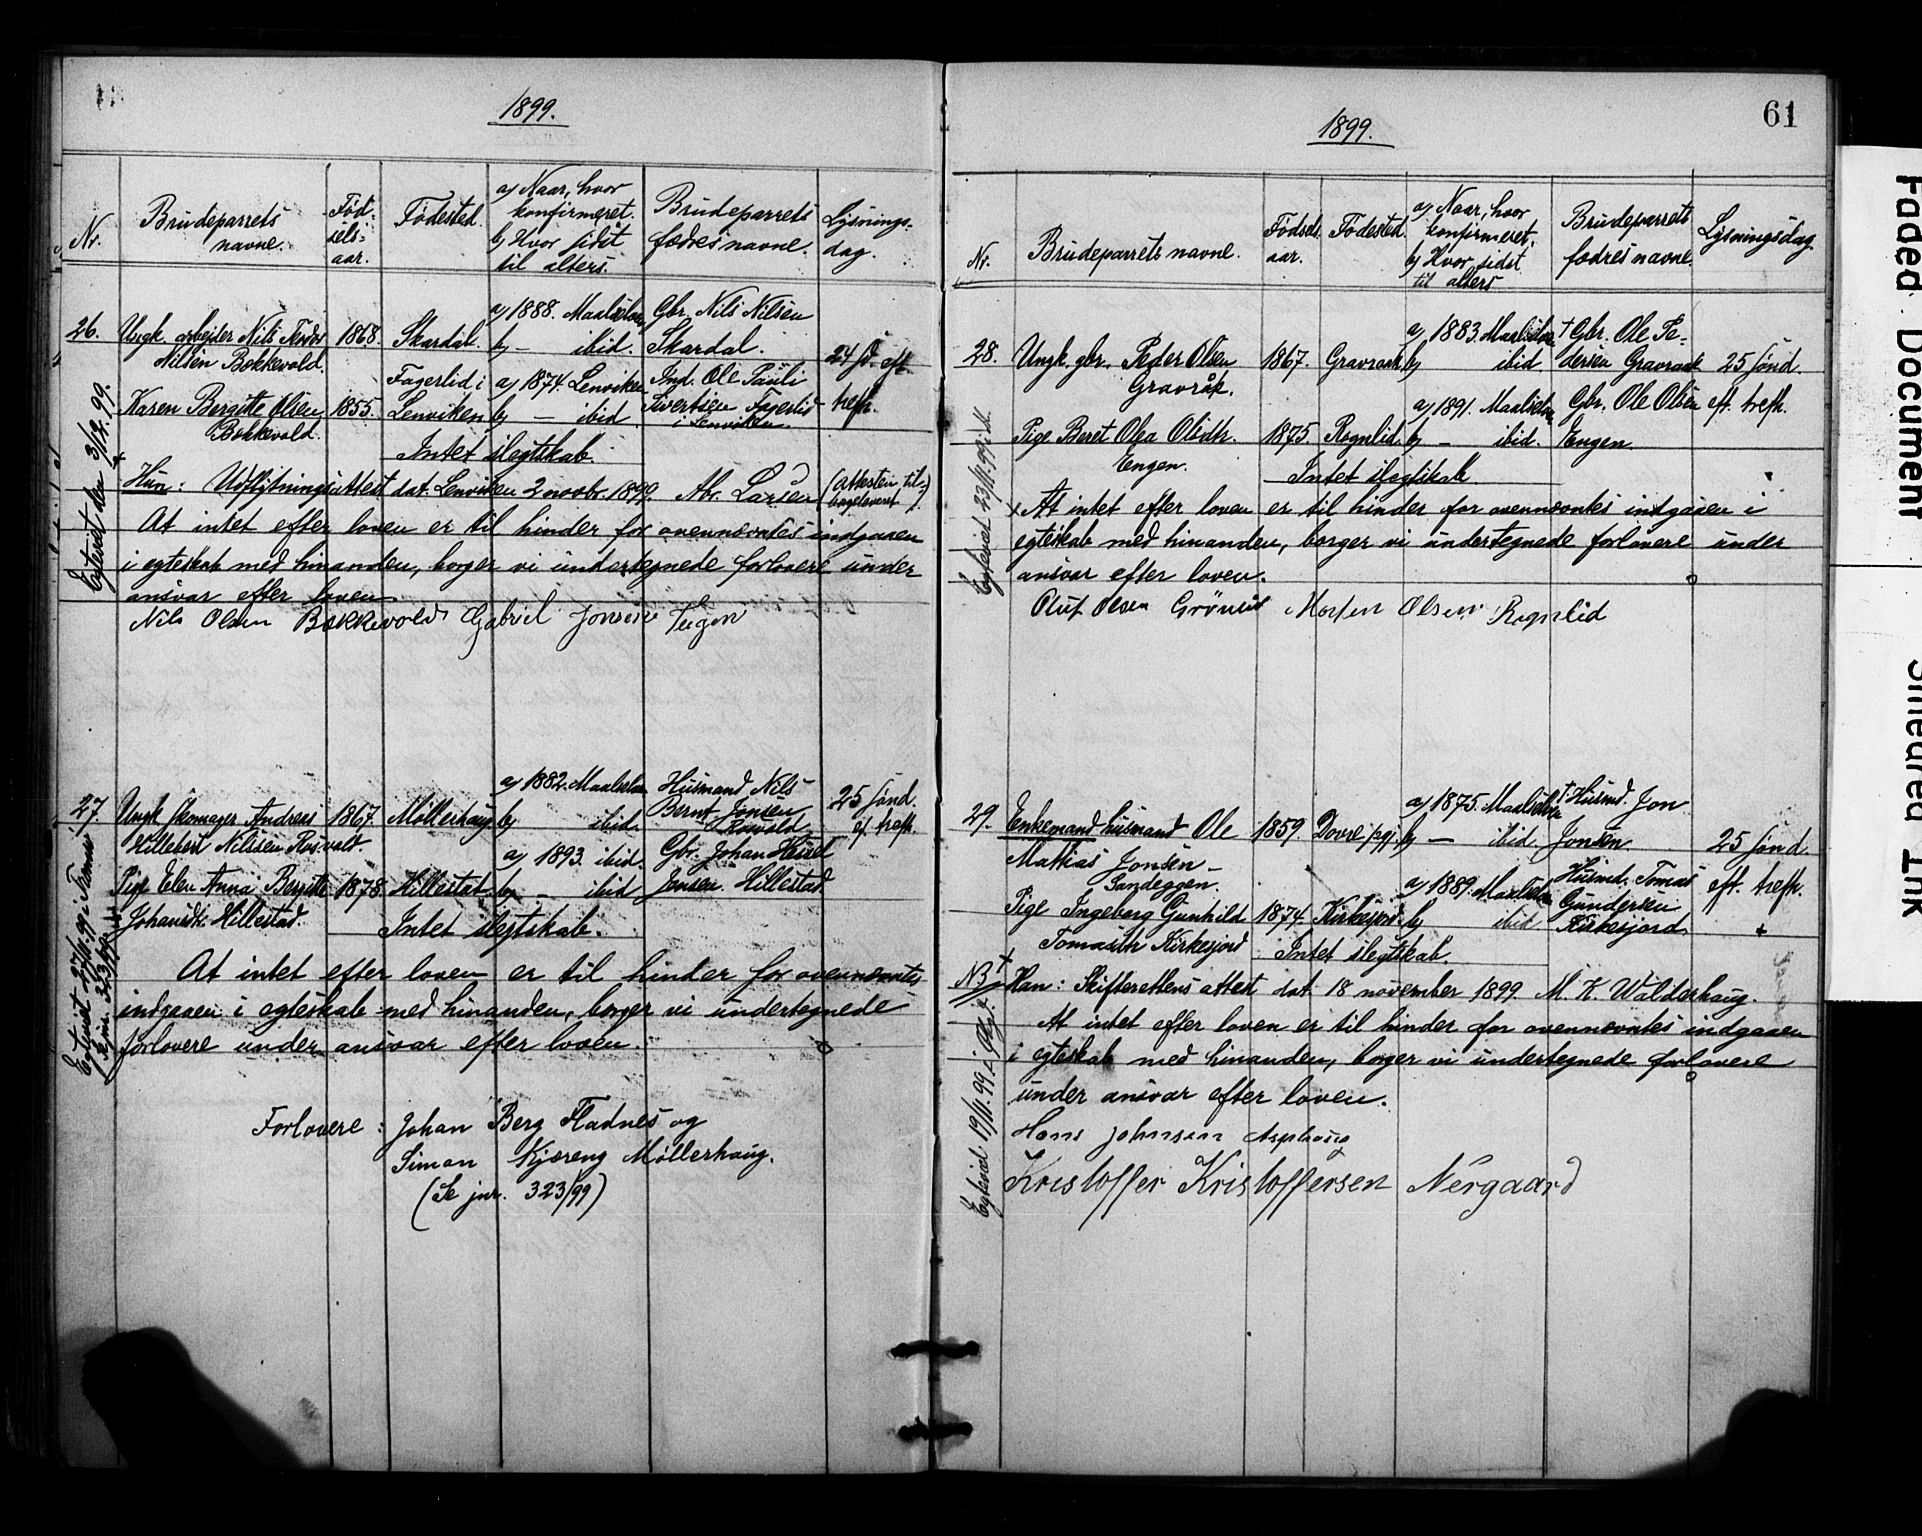 1899.
Nr.
Brudeparrets
navne.
Fød-
sels-
aar.
Fødested.
a) Naar, hvor
konfirmeret.
b) Hvor sidst
til alters.
Brudeparrets
fædres navne.
Lysnings-
dag.
26.
Ungk. arbeider Nils
Nilsen Bakkevold.
1868.
Skardal.
a) 1888. Maalselven
b) — ibid.
Gbr. Nils Nilsen
Skardal.
24 s. eft.
trefh.
Karen Bergitte Olsen
Bakkevold.
1855.
Fagerlid i
Lenviken
a) 1874. Lenviken
b) — ibid.
Ole Pauli
Sivertsen Fagerlid
i Lenviken.
Intet slegtskab.
Hun: Udflytningsattest dat. Lenviken 2 novbr. 1899. Ab. Larsen (Attesten til-
bageleveret).
At intet efter loven er til hinder for ovennævntes indgaaen
i egteskab med hinanden, borger vi undertegnede forlovere under
ansvar efter loven.
Nils Olsen Bakkevold Gabriel Jonsen
Egteviet den 3/12. 99.
27.
Ungk. skomager Andreas
Hillebert Nilssen Rosvold.
1867.
Møllerhaug
a) 1882. Maalselven
b) ibid.
Husmand Nils
Bernt Jonsen
Rosvold
25 sønd.
ef. trefh.
Pige Elen Anna Bergitte
Johansdtr. Hillestad.
1878.
Hillestad
a) 1893. ibid.
b) — ibid
Gbr. Johan
Jensen Hillestad
Intet slegtskab.
At intet efter loven er til hinder for ovennævntes
indgaaen i egteskab med hinanden, borger vi undertegnede
forlovere under ansvar efter loven.
Forlovere: Johan Berg Fladnes og
Simon Kjæreng Møllerhaug.
(Se jnr. 323/99)
Egteviet 27/11. 99 i
Se jnr. 323/99
61
1899.
Nr.
Brudeparrets navne.
Fødsels
aar.
Fødested.
a) Naar, hvor
konfirmeret.
b) Hvor sidst
til alters
Brudeparrets
fædres navne.
Lysningsdag.
28.
Ungk. gbr. Peder Olsen
Gravråk.
1867.
Gravraak
a) 1883. Maalselven
b) ibid.
† Gbr. Ole Pe-
dersen Gravraak
25 sønd.
eft. trefh.
Pige Beret Olea Olsdtr.
Engen.
1875.
Rognlid.
a) 1891. Maalselven
b) — ibid.
Gbr. Ole Olsen
Engen
Intet slegtskab
At intet efter loven er til hinder for ovennævntes indgaaen i
egteskab med hinanden, borger vi undertegnede forlovere under
ansvar efter loven.
Oluf Olsen Grønlid Morten Olsen Rognlid
Egteviet 23/11. 99 i M.
29.
Enkemand husmand Ole
Mathias Jonsen
Sandeggen.
1859.
Dovre pgj.
a) 1875. Maalselven
b) — ibid.
† Husmd. Jon
Jonsen
25 sønd.
eft. trefh.
Pige Ingeborg Gunhild
Tomasdtr. Kirkesjord
1874.
Kirkesjord
a) 1889. Maalselven
b) ibid
Husmd. Tomas
Gundersen
Kirkesjord.
Intet slegtskab.
NB
Han: Skifterettens attest dat. 18 november 1899. M. K. Walderhaug.
At intet efter loven er til hinder for ovennævntes indgaaen
i egteskab med hinanden, borger vi undertegnede forlovere
under ansvar efter loven.
Hans Johnsen Asphaug
Kristoffer Kristoffersen Nergaard
Egteviet 19/11. 99 i
Faded Document
Smeared Ink